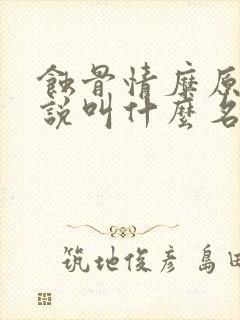 蝕骨情糜原
說叫什麼名
筑地俊彦 島田